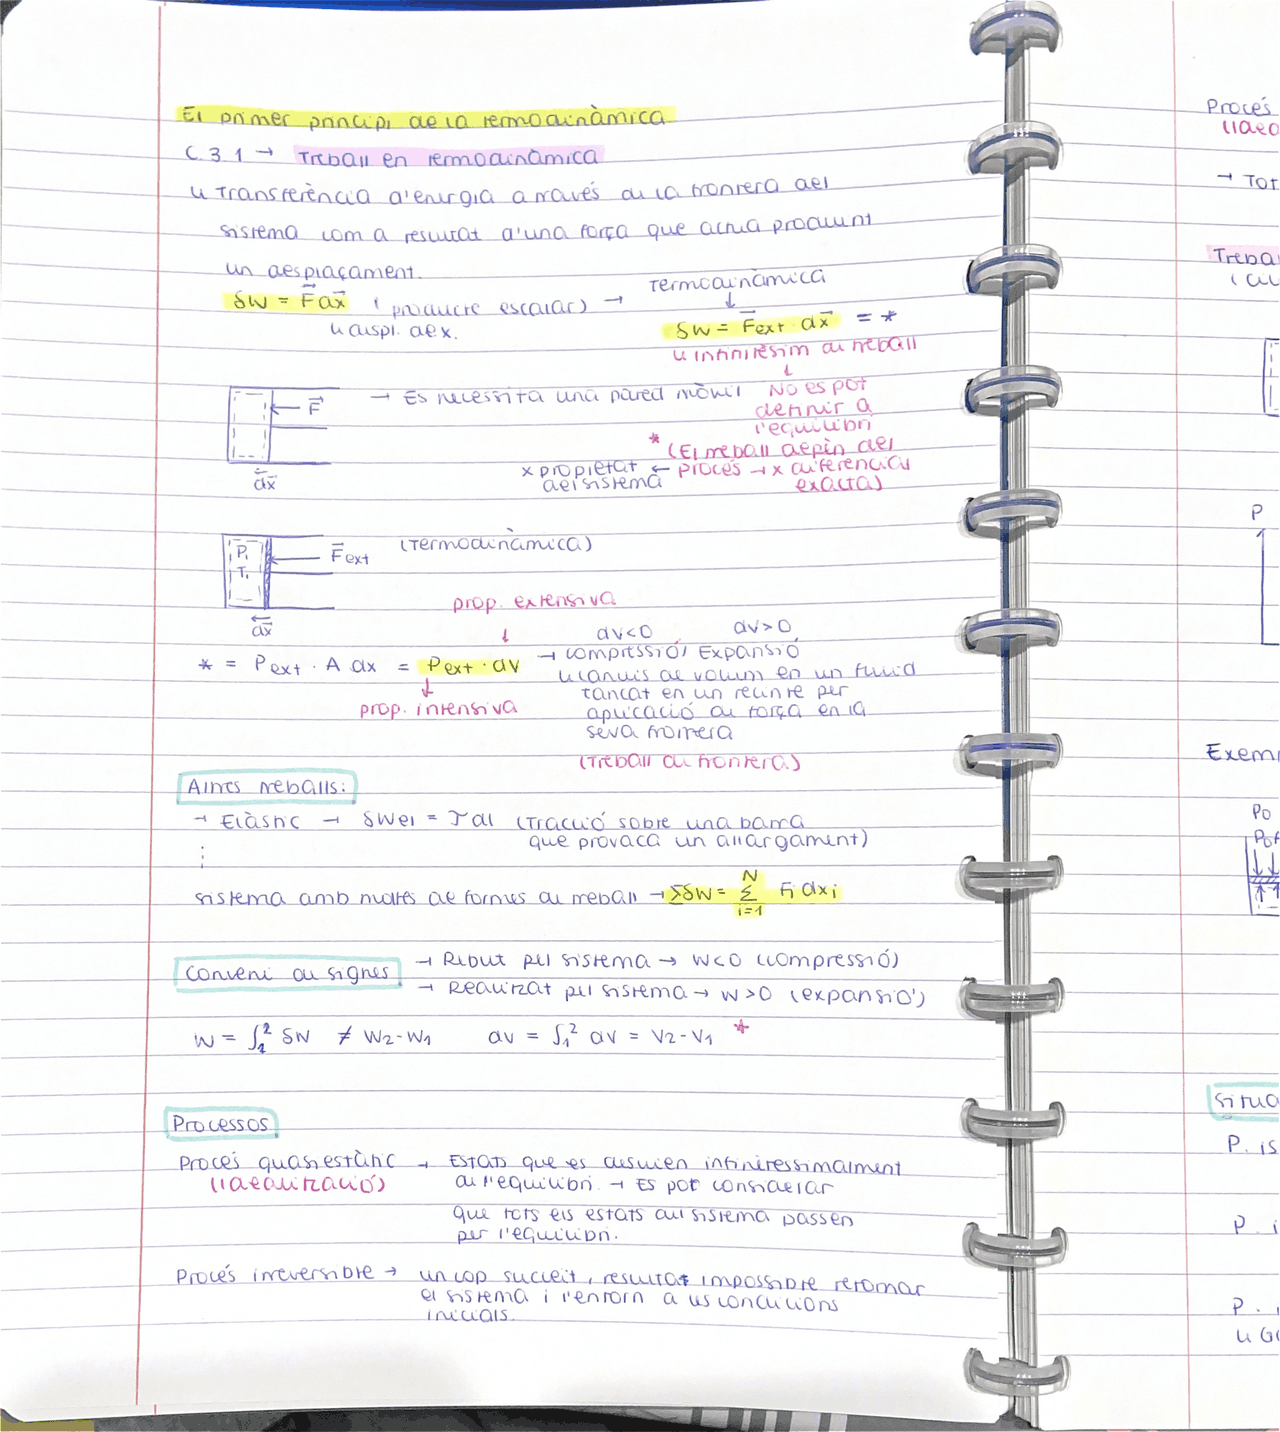 El primer principi de la termodinàmica
C.3.1 → Treball en termodinàmica
↳ Transferència d'energia a través de la frontera del
sistema com a resultat d'una força que actua produint
un desplaçament.
δW = F⃗ dx⃗ (producte escalar) →
↳ despl. de x.
Termodinàmica
↓
δW = F⃗ext · dx⃗ = *
↳ infinitèsim de treball
↓
No es pot
definir a
l'equilibri
* (El treball depèn del
procés → x diferencial
exacta)
x propietat ←
del sistema
F⃗
→ Es necessita una pared mòbil
dx⃗
P₁
T₁
F⃗ext
(Termodinàmica)
dx⃗
prop. extensiva
↓
* = Pext · A dx = Pext · dV
↓
prop. intensiva
dV<0 dV>0
→ Compressió/Expansió
↳ canvis de volum en un fluid
tancat en un recinte per
aplicació de força en la
seva frontera
(Treball de frontera)
Altres treballs:
→ Elàstic → δWel = τ dl (Tracció sobre una barra
que provaca un allargament)
⋮
sistema amb moltes de formes de treball → ΣδW = Σ Fi dxi
N
i=1
Conveni de signes
→ Rebut pel sistema → W<0 (compressió)
→ Realitzat pel sistema → W>0 (expansió)
W = ∫₁² δW ≠ W₂-W₁ dV = ∫₁² dV = V₂-V₁ *
Processos
Procés quasiestàtic → Estats que es desvien infinitessimalment
(idealització) de l'equilibri. → Es pot considerar
que tots els estats del sistema passen
per l'equilibri.
Procés irreversible → un cop succeit, resultat impossible retornar
el sistema i l'entorn a les condicions
inicials.
Procés
(idea
→ Tot
Treba
P
Exem
P₀
situa
P. is
P. i
P. i